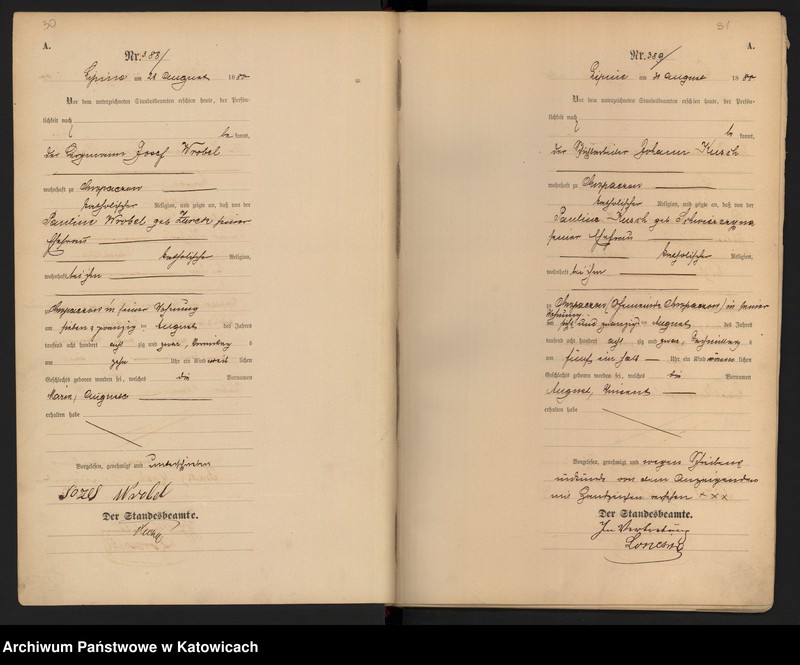 30
A.
Nr. 388
Lipine am 28 August 1880
Vor dem unterzeichneten Standesbeamten erschien heute, der Persön-
lichkeit nach
be kannt,
der Bergmann Josef Wrobel
wohnhaft zu
katholischer Religion, und zeigte an, daß von der
Pauline Wrobel geb. seiner
Ehefrau
katholischer Religion,
wohnhaft bei ihm
in seiner Wohnung
am sieben & zwanzig ten August des Jahres
tausend acht hundert acht zig und zwar, Vormittag s
um zehn Uhr ein Kind weib lichen
Geschlechts geboren worden sei, welches die Vornamen
Marie, Auguste
erhalten habe
Vorgelesen, genehmigt und unterschrieben
Jozef Wrobel
Der Standesbeamte.
31
A.
Nr. 389
Lipine am 30 August 1880
Vor dem unterzeichneten Standesbeamten erschien heute, der Persön-
lichkeit nach
be kannt,
der Johann Kusch
wohnhaft zu
katholischer Religion, und zeigte an, daß von der
Pauline Kusch geb.
seiner Ehefrau
katholischer Religion,
wohnhaft bei ihm
zu in seiner
Wohnung
am acht und zwanzig ten August des Jahres
tausend acht hundert acht zig und zwar, Nachmittag s
um fünf ein halb Uhr ein Kind männ lichen
Geschlechts geboren worden sei, welches die Vornamen
August, Vincent
erhalten habe
Vorgelesen, genehmigt und wegen Schreibens
unkunde von dem Anzeigenden
mit Handzeichen versehen × × ×
Der Standesbeamte.
In Vertretung
Archiwum Państwowe w Katowicach